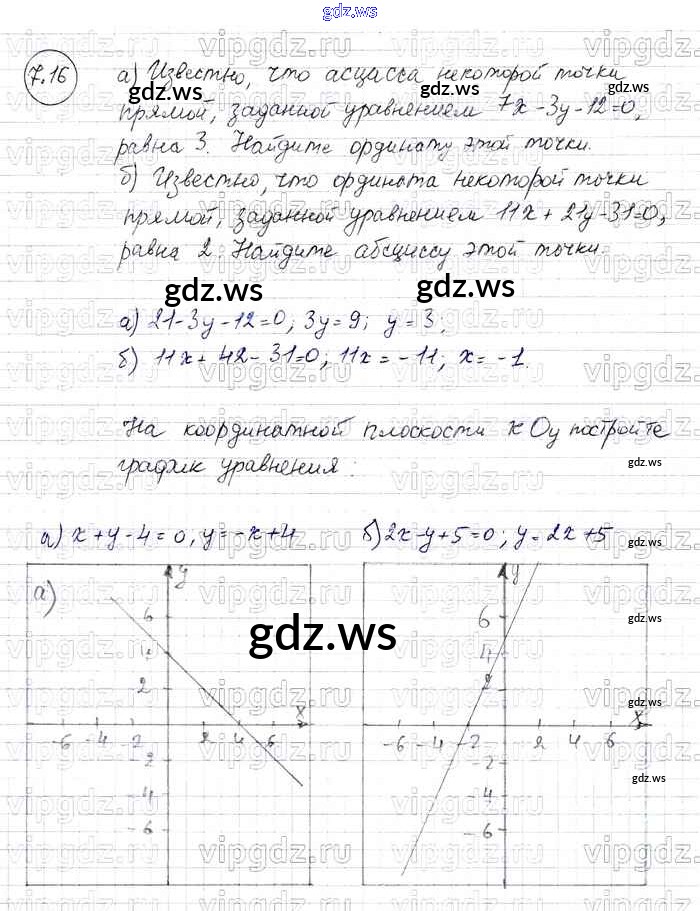 gdz.ws
7.16
а) Известно, что асцасса некоторой точки
прямой, заданной уравнением 7x-3y-12=0,
равна 3. Найдите ординату этой точки.
б) Известно, что ордината некоторой точки
прямой, заданной уравнением 11x+21y-31=0,
равна 2. Найдите абсциссу этой точки.
gdz.ws gdz.ws
а) 21-3y-12=0; 3y=9; y=3;
б) 11x+42-31=0; 11x=-11; x=-1.
На координатной плоскости xOy постройте
график уравнения:
а) x+y-4=0, y=-x+4 б) 2x-y+5=0; y=2x+5
а) y y
6 6
gdz.ws
4 4
2 2
x x
-6 -4 -2 2 4 6 -6 -4 -2 2 4 6
-2 -2
-4 -4
-6 -6
vipgdz.ru